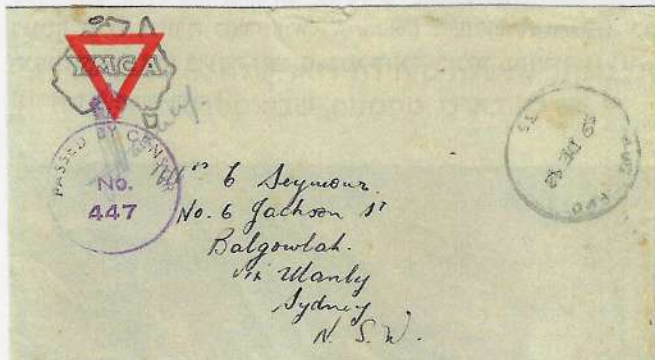 YMCA
PASSED BY CENSOR
No.
447
AUS FPO
29 DE 42
Mrs C Seymour.
No. 6 Jackson St
Balgowlah.
via Manly
Sydney
N. S. W.